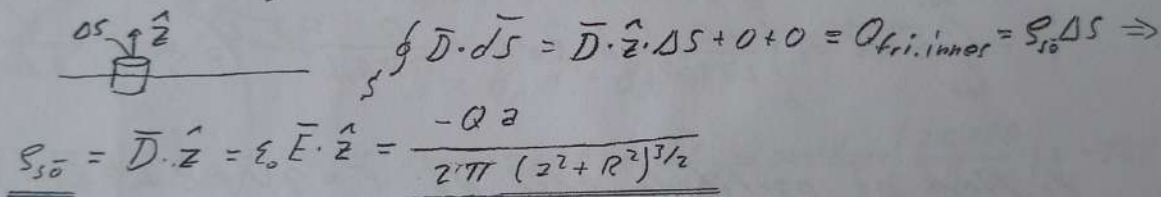 ΔS ẑ
∮_S D̄·d̄S = D̄·ẑ·ΔS + 0 + 0 = Q_fri.innes = ρ_sö ΔS ⇒
ρ_sö = D̄·ẑ = ε₀ Ē·ẑ = -Q a / 2π (z² + R²)^3/2